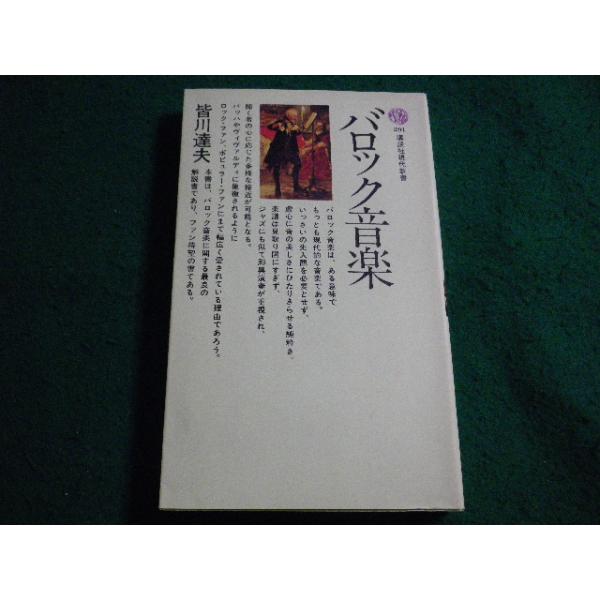 291 講談社現代新書
バロック音楽
バロック音楽は、ある意味で
もっとも現代的な音楽である。
いっさいの先入観を必要とせず、
虚心に音の美しさにひたりきらせる純粋さ。
楽譜は見取り図にすぎず、
ジャズにも似て即興演奏が重視され、
聞く者の心に応じた多様な接近が可能となる。
バッハやヴィヴァルディに象徴されるように
ロック・ファン、ポピュラー・ファンにまで幅広く愛されている理由であろう。
本書は、バロック音楽に関する最良の
解説書であり、ファン待望の書である。
皆川達夫